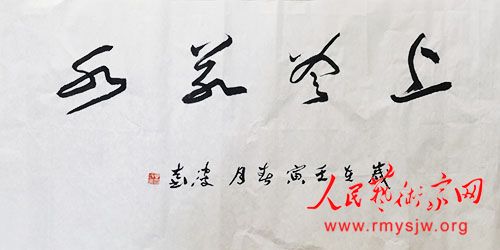 上善若水
歲在壬寅春月
人民藝術家网
www.rmysjw.org